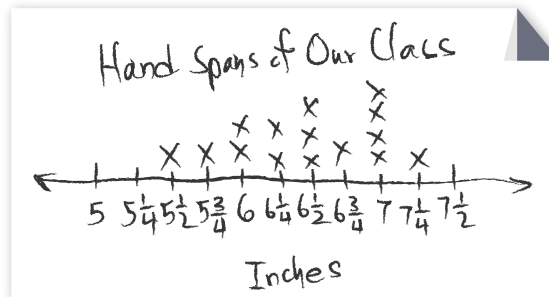 Hand Spans of Our Class
x
x x
x x x x
x x x x x x x x
5 5 1/4 5 1/2 5 3/4 6 6 1/4 6 1/2 6 3/4 7 7 1/4 7 1/2
Inches